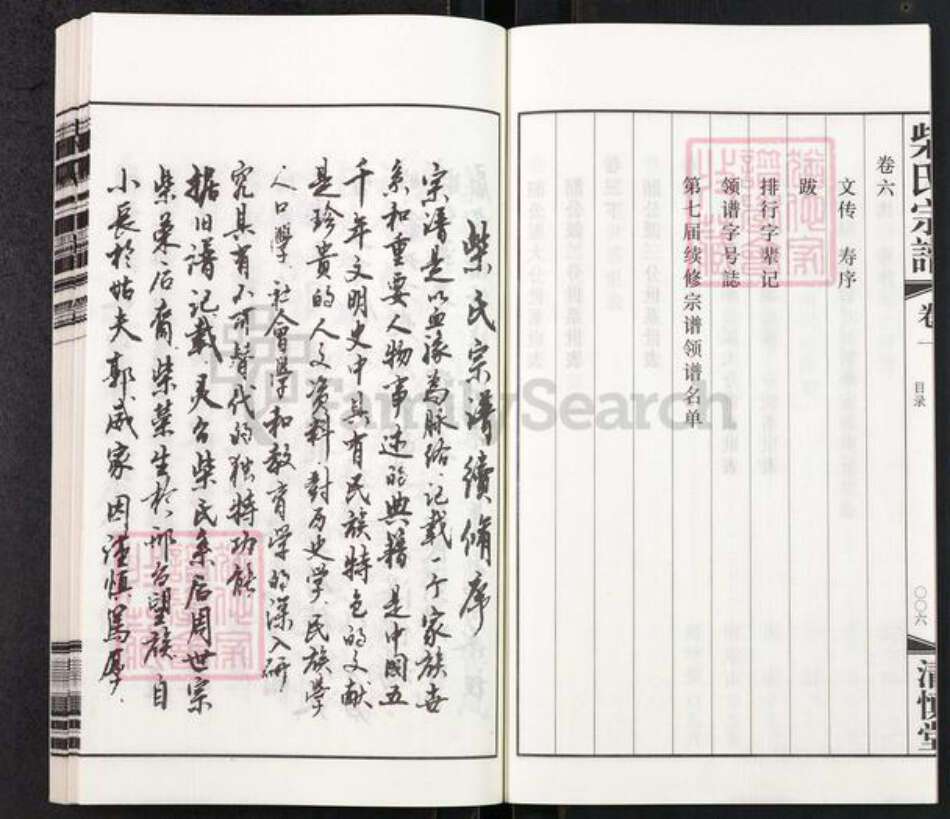 柴氏宗譜
卷一
目录
〇〇六
清慎堂
卷六
文传 寿序
跋
排行字辈记
领谱字号誌
第七届续修宗谱领谱名单
柴氏宗谱續脩序
宗谱是以血缘为脉络、记载一个家族世
系和重要人物事迹的典籍是中国五
千年文明史中具有民族特色的文献
是珍贵的人文资料对历史学、民族学
人口學、社会學和教育学的深入研
究具有不可替代的独特功能
据旧谱记载、灵台柴氏系后周世宗
柴荣后裔、柴荣生於邢台望族自
小长於姑夫郭威家因谨慎篤厚、
FamilySearch